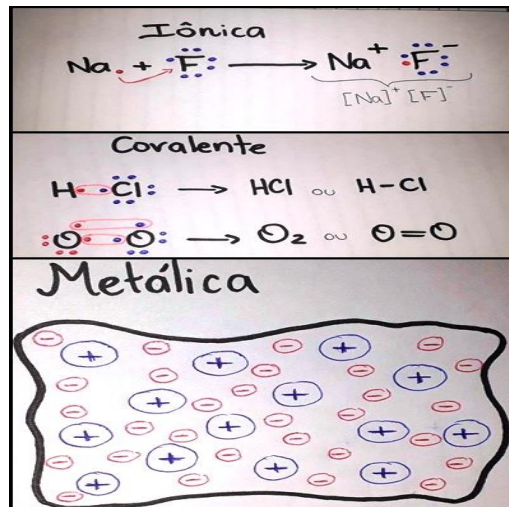 Iônica
Na. + F → Na⁺ F⁻
[Na]⁺ [F]⁻
Covalente
H Cl → HCl ou H-Cl
O O → O₂ ou O=O
Metálica
- - - +
+ + - +
- - - +
- + - + -
- - - -
+ - + - + - +
- - + - -
+ - + - +
- -